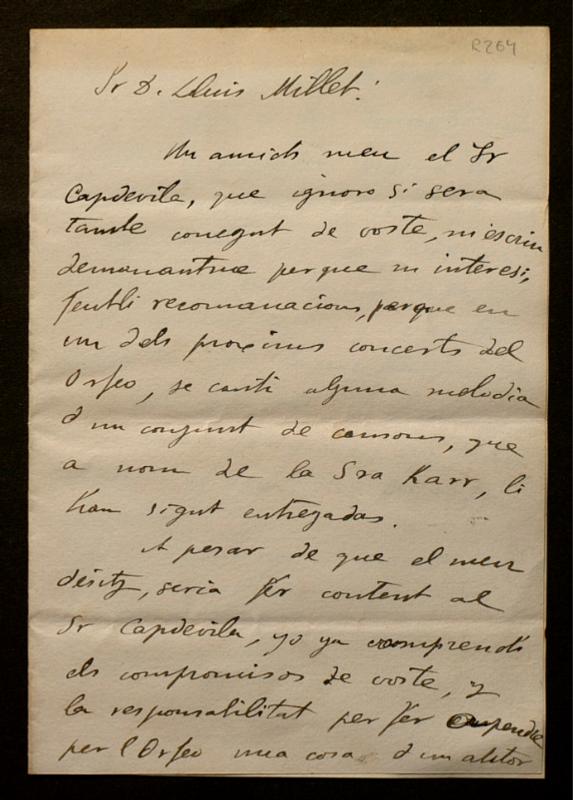 R264
Sr D. Lluis Millet:
Un amich meu el Sr
Capdevila, que ignoro si sera
tambe conegut de voste, m'escriu
demanantme perque m'interesi,
fentli recomanacions, perque en
un dels proxims concerts del
Orfeo, se canti alguna melodia
d'un conjunt de cansons, que
a nom de la Sra Karr, li
han sigut entregadas.
A pesar de que el meu
desitg, seria fer content al
Sr Capdevila, yo ya comprench
els compromisos de voste, y
la responsabilitat per fer
per l'Orfeo una cosa d'un autor